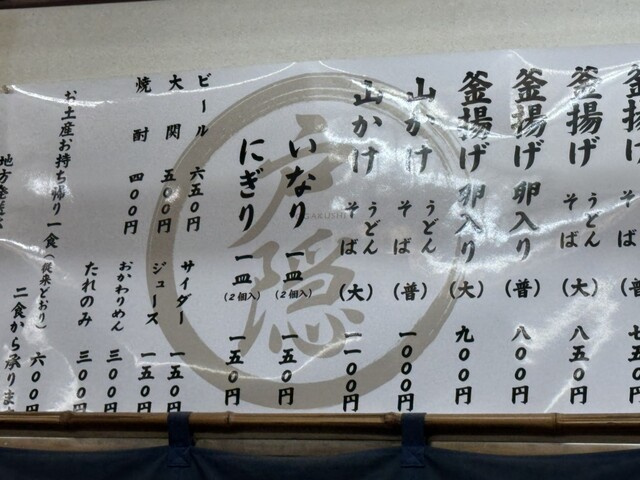 釜揚げ そば 七五〇円
釜揚げ うどん そば (大) 八五〇円
釜揚げ 卵入り (普) 八〇〇円
釜揚げ 卵入り (大) 九〇〇円
山かけ うどん そば (普) 一〇〇〇円
山かけ うどん そば (大) 一一〇〇円
いなり 一皿 (2個入) 一五〇円
にぎり 一皿 (2個入) 一五〇円
ビール 六五〇円
大関 五〇〇円
焼酎 四〇〇円
サイダー 一五〇円
ジュース 一五〇円
おかわりめん 三〇〇円
たれのみ 三〇〇円
お土産お持ち帰り 一食 (従来どおり) 六〇〇円
二食から承ります
地方発送
戸隠
GAKUSHI